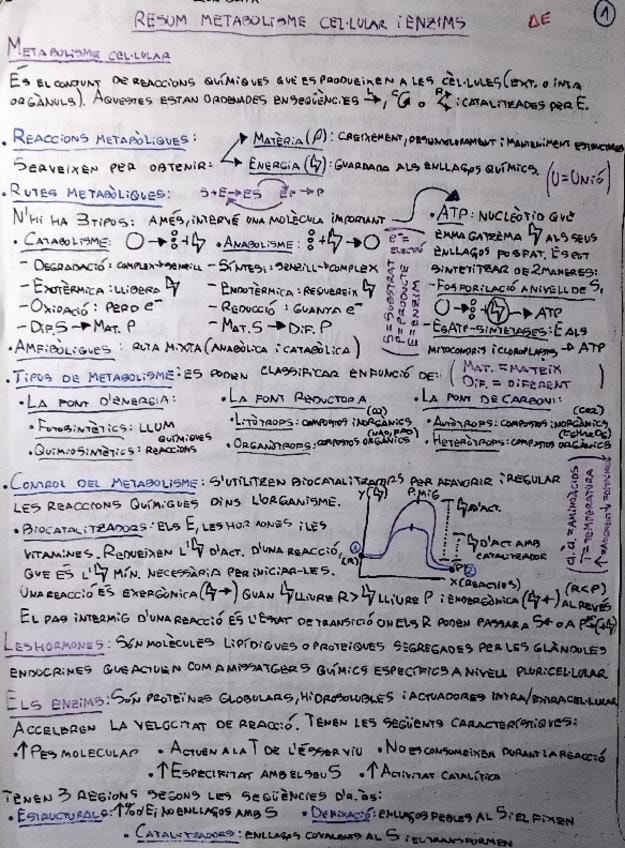 RESUM METABOLISME CEL·LULAR i ENZIMS
ΔE
1
METABOLISME CEL·LULAR
ÉS EL CONJUNT DE REACCIONS QUÍMIQUES QUE ES PRODUEIXEN A LES CÈL·LULES (EXT. O INTRA
ORGÀNULS). AQUESTES ESTAN ORDENADES EN SEQÜÈNCIES → L, C O R; i CATALITZADES PER E.
• REACCIONS METABÒLIQUES:
SERVEIXEN PER OBTENIR:
MATÈRIA (P): CREIXEMENT, DESENVOLUPAMENT i MANTENIMENT ESTRUCTURES
ENERGIA (ϟ): GUARDADA ALS ENLLAÇOS QUÍMICS.
(U=UNIÓ)
• RUTES METABÒLIQUES: S+E→ES EP→P
N'HI HA 3 TIPUS: A MÉS, INTERVÉ UNA MOLÈCULA IMPORTANT
• CATABOLISME: • ANABOLISME:
- DEGRADACIÓ: COMPLEX→SENZILL - SÍNTESI: SENZILL→COMPLEX
- EXOTÈRMICA: LLIBERA ϟ - ENDOTÈRMICA: REQUEREIX ϟ
- OXIDACIÓ: PERD e⁻ - REDUCCIÓ: GUANYA e⁻
- DIF. S → MAT. P - MAT. S → DIF. P
• AMFIBÒLIQUES: RUTA MIXTA (ANABÒLICA i CATABÒLICA)
e⁻=ELECTRÓ
S=SUBSTRAT
P=PRODUCTE
E=ENZIM
• ATP: NUCLEÒTID QUE
EMMAGATZEMA ϟ ALS SEUS
ENLLAÇOS FOSFAT. ES POT
SINTETITZAR DE 2 MANERES:
- FOSFORILACIÓ A NIVELL DE S,
→ATP
- ES ATP-SINTETASES: E ALS
MITOCONDRIS i CLOROPLASTS → ATP
• TIPUS DE METABOLISME: ES PODEN CLASSIFICAR EN FUNCIÓ DE:
(MAT. = MATEIX
DIF. = DIFERENT)
• LA FONT D'ENERGIA: • LA FONT REDUCTORA • LA FONT DE CARBONI:
• FOTOSINTÈTICS: LLUM
• QUIMIOSINTÈTICS: REACCIONS QUÍMIQUES
• LITÒTROFS: COMPOSTOS INORGÀNICS
• ORGANÒTROFS: COMPOSTOS ORGÀNICS
• AUTÒTROFS: COMPOSTOS INORGÀNICS (CO2)
• HETERÒTROFS: COMPOSTOS ORGÀNICS
• CONTROL DEL METABOLISME: S'UTILITZEN BIOCATALITZADORS PER AFAVORIR i REGULAR
LES REACCIONS QUÍMIQUES DINS L'ORGANISME.
• BIOCATALITZADORS: ELS E, LES HORMONES i LES
VITAMINES. REDUEIXEN L'ϟ D'ACT. D'UNA REACCIÓ,
QUE ÉS L'ϟ MÍN. NECESSÀRIA PER INICIAR-LES.
Y(ϟ)
P. MIG
ϟ D'ACT.
ϟ D'ACT AMB
CATALITZADOR
1
(R)
2
X (REACTIUS)
a.a=AMINOÀCIDS
T=TEMPERATURA
UNA REACCIÓ ES EXERGÒNICA (ϟ→) QUAN ϟ LLIURE R > ϟ LLIURE P i ENDERGÒNICA (ϟ+) AL REVÉS (R<P)
EL PAS INTERMIG D'UNA REACCIÓ ÉS L'ESTAT DE TRANSICIÓ ON ELS R PODEN PASSAR A S+ O A P
LES HORMONES: SÓN MOLÈCULES LIPÍDIQUES O PROTEIQUES SEGREGADES PER LES GLÀNDULES
ENDOCRINES QUE ACTUEN COM A MISSATGERS QUÍMICS ESPECÍFICS A NIVELL PLURICEL·LULAR
ELS ENZIMS: SÓN PROTEÏNES GLOBULARS, HIDROSOLUBLES i ACTUADORES INTRA/EXTRACEL·LULAR
ACCELEREN LA VELOCITAT DE REACCIÓ. TENEN LES SEGÜENTS CARACTERÍSTIQUES:
• ↑PES MOLECULAR • ACTUEN A LA T DE L'ÉSSER VIU • NO ES CONSUMEIXEN DURANT LA REACCIÓ
• ↑ESPECIFITAT AMB EL SEU S • ↑ACTIVITAT CATALÍTICA
TENEN 3 REGIONS SEGONS LES SEQÜÈNCIES D'a.as:
• ESTRUCTURALS: ↑% D'E i NO ENLLAÇOS AMB S • DE FIXACIÓ: ENLLAÇOS FEBLES AL S i EL FIXEN
• CATALITZADORS: ENLLAÇOS COVALENTS AL S i EL TRANSFORMEN